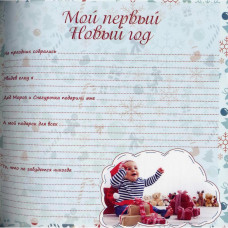 Мой первый
Новый год
На праздник собрались
Мывев елку в
Дед Мороз и Снегурочка подарили мне
А мой подарок для всех
То, что не забудется никогда